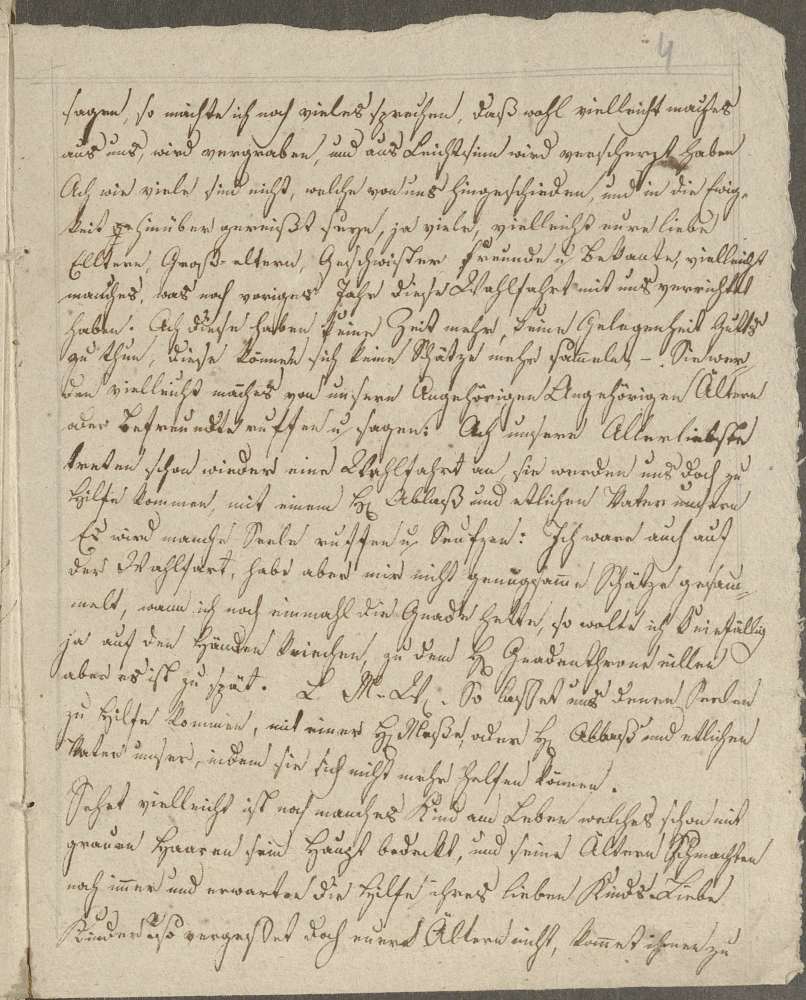 4
sagen, so möchte ich noch vieles sprechen, daß wohl vielleicht manches
aus uns, wird vergraben, und aus Leichtsinn wird verscherzt haben
Ach wie viele sind nicht, welche von uns hingeschieden, und in die Ewig-
keit hinüber gereißt seyn, ja viele, vielleicht eure liebe
Elltern, Groß-eltern, Geschwister Freunde u Bekante, vielleicht
manches, was noch voriges Jahr diese Wahlfahrt mit uns verrichtet
haben. Ach diese haben keine Zeit mehr, keine Gelegenheit Gutts
zu thun, diese können sich keine Schätze mehr sammeln, –. Sie wer
den vielleicht manches von unsern Angehörigen Angehörigen Ältern
oder befreundte ruffen u sagen: Ach unsere Allerliebste
tretten schon wieder eine Wahlfahrt an, sie werden uns doch zu
Hilfe kommen, mit einem H Ablaß und etlichen Vater unsern
Es wird manche Seele ruffen u Seufzen: Ich ware auch auf
der Wahlfart, habe aber mir nicht genugsamme Schätze gesam-
melt, wann ich noch einmahl die Gnade hette, so wolte ich Kniefällig
ja auf den Händen kriechen, zu dem H Gnadenthrone eillen
aber es ist zu spät. L M. W. So lasset uns denen Seelen
zu Hilfe kommen, mit einer H Meße, oder H Abblaß und etlichen
Vater unser, indem sie sich nicht mehr helfen können.
Sehet vielleicht ist noch manches Kind am Leben welches schon mit
grauen Haaren sein Haupt bedeckt, und seine Ältern Schmachten
noch immer und erwarten die Hilfe ihres lieben Kinds. Liebe
Kinder so vergesset doch eure Ältern nicht, kommet ihnen zu